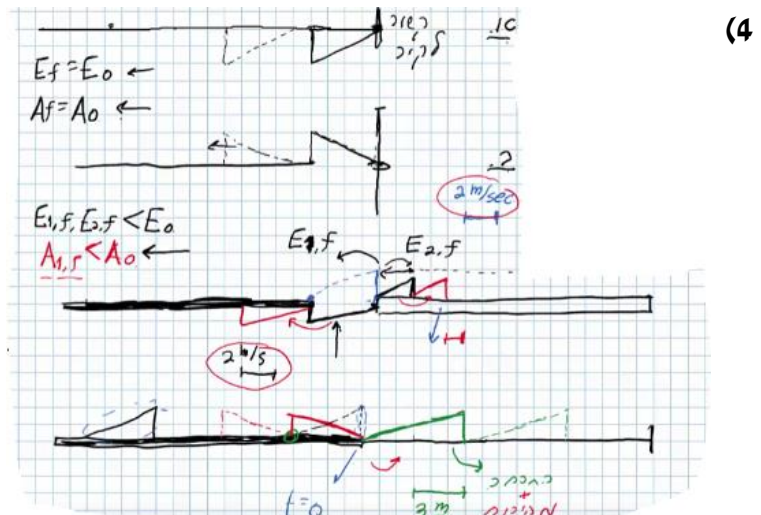 (4
.א
Ef = E0 ←
Af = A0 ←
.ב
2 m/sec
E1,f, E2,f < E0
A1,f < A0 ←
E1,f
E2,f
2 m/s
t=0
3 m
+